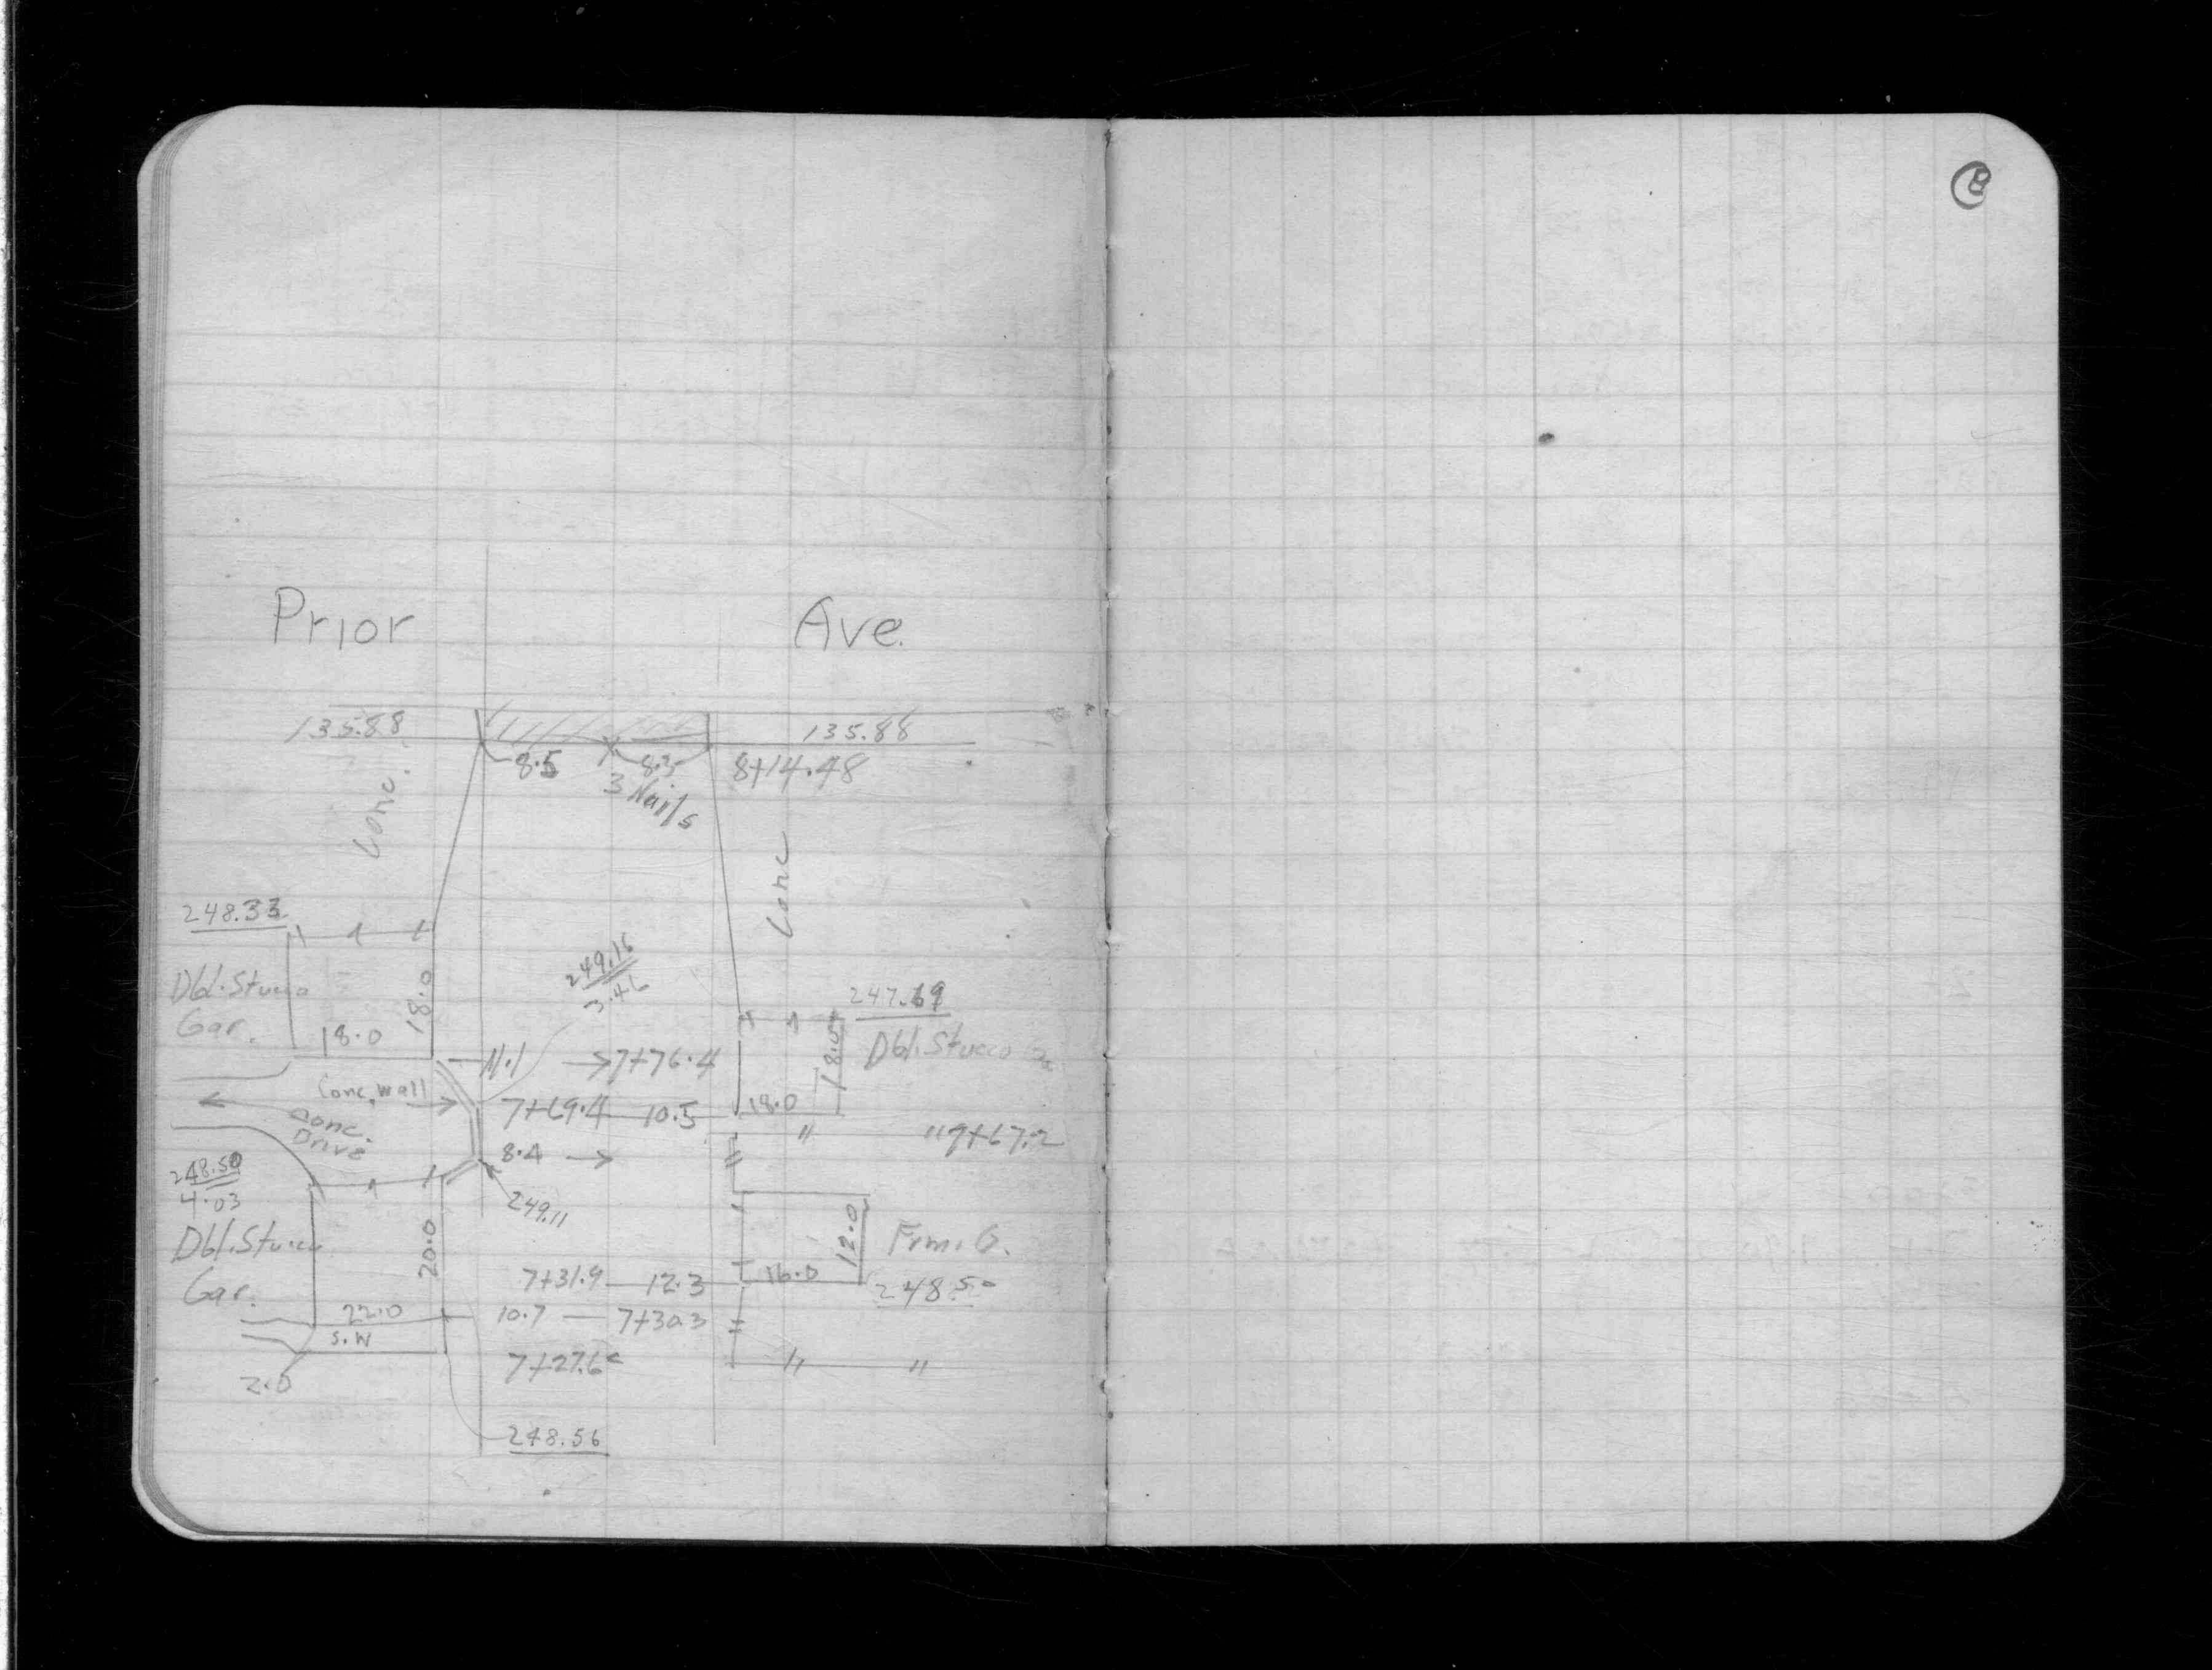 B
Prior Ave.
135.88 135.88
8.5 8.3 8+14.48
3 Nails
Conc.
Conc
248.33
249.16
3.46
247.69
Dbl. Stucco
Gar.
18.0
18.0
Dbl. Stucco
18.0
11.1 → 7+76.4
Conc. Wall
7+69.4 10.5 18.0
Conc.
Drive
" "
8.4 →
248.50
4.03
249.11
Dbl. Stucco
Gar.
20.0
12.0
Frm. G.
7+31.9 12.3 16.0
248.50
22.0 10.7 — 7+30.3
S.W
7+27.6 " "
2.0
248.56